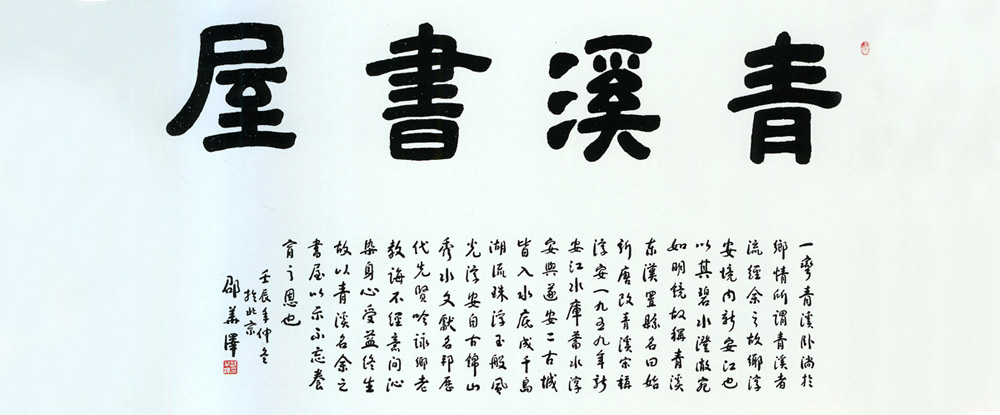 青溪書屋
一彎青溪卧淌於
鄉情所謂青溪者
流經余之故鄉淳
安境内新安江也
以其碧水澄澈宛
如明鏡故稱青溪
東漢置縣名曰始
新唐改青溪宋稱
淳安一九五九年新
安江水庫蓄水淳
安與遂安二古城
皆入水底成千島
湖流珠浮玉般風
光淳安自古錦山
秀水文獻名邦歷
代先賢吟詠鄉老
教誨不經意间沁
染身心受益终生
故以青溪名余之
書屋以示不忘養
育之恩也
壬辰年仲冬
於北京
邵華澤